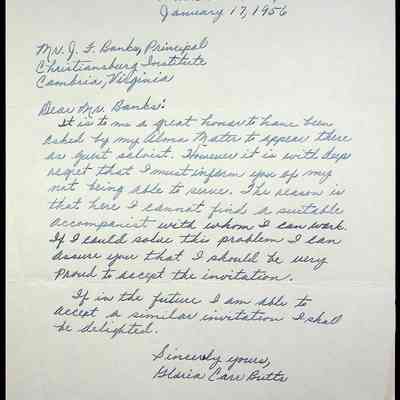 January 17, 1956
Mr. J. F. Banks, Principal
Christiansburg Institute
Cambria, Virginia
Dear Mr. Banks:
It is to me a great honor to have been
asked by my Alma Mater to appear there
as guest soloist. However it is with deep
regret that I must inform you of my
not being able to serve. The reason is
that here I cannot find a suitable
accompanist with whom I can work.
If I could solve this problem I can
assure you that I should be very
proud to accept the invitation.
If in the future I am able to
accept a similar invitation I shall
be delighted.
Sincerely yours,
Gloria Carr Butts